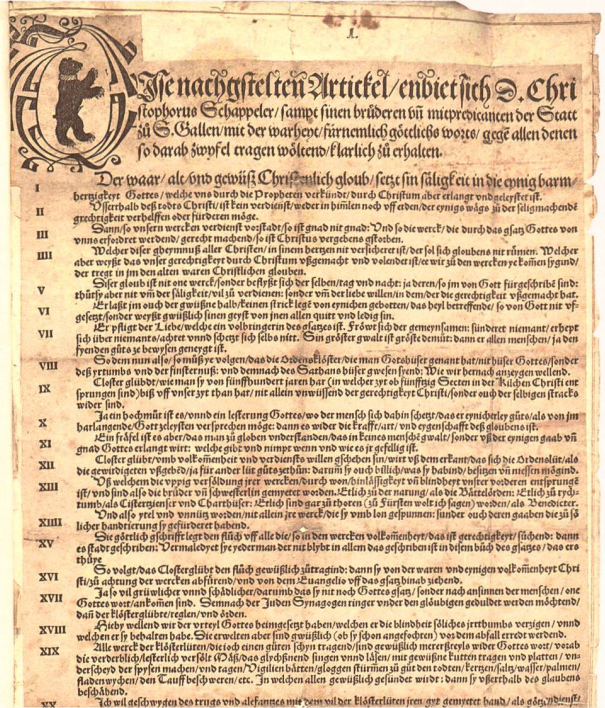 1.
Dise nachgstelten Artickel/ enbiet sich D. Chri
stophorus Schappeler/ sampt sinen brüderen vñ mitpredicanten der Statt
zů S. Gallen/ mit der warheyt/ fürnemlich götlichs worts/ gegẽ allen denen
so darab zwyfel tragen wöltend/ klarlich zů erhalten.
I Der waar/ alt/ vnd gewüß Christenlich gloub/ setzt sin säligkeit in die eynig barm/
hertzigkeyt Gottes/ welche vns durch die Propheten verkündt/ durch Christum aber erlangt vnd geleystet ist.
II Vsserthalb deß todts Christi/ ist keyn verdienst/ weder in himlen noch vff erden/ der eynigo wäge zů der seligmachendẽ
grechtigkeit verhelffen oder fürderen möge.
III Dann/ so vnsern wercken verdienst vorstadt/ so ist gnad nit gnad: Vnd so die werck/ die durch das gsatz Gottes von
vnns erfordret werdend/ gerecht machend/ so ist Christus vergebens gstorben.
IIII Welcher diser gheymnuß aller Christen/ in sinem hertzen nit versicheret ist/ der sol sich gloubens nit rümen. Welcher
aber weyßt das vnser gerechtigkeyt durch Christum vßgemacht vnd volendet ist/
der tregt in jm den alten waren Christlichen glouben.
V Diser gloub ist nit one werck/ sonder beflyßt sich der selben/ tag vnd nacht: ja deren/ so jm von Gott fürgeschribẽ sind:
thůts aber nit vm̃ der säligkeit/ vil zů verdienen: sonder vm̃ der liebe willen/ in dem/ der die gerechtigkeit vßgemacht hat.
VI Erlaßt jm ouch der gwüßne halb/ keinen strick legẽ von eynichen gebotten/ das heyl betreffende/ so von Gott nit vf-
gesetzt/ sonder weyßt gwüßlich sinen geyst von jnen allen quitt vnd ledig sin.
VII Er pfligt der Liebe/ welche ein volbringerin des gsatzes ist. Fröwt sich der gemeynsamen: sünderet niemant/ erhept
sich über niemants/ achtet vnnd schetzt sich selbs nitt. Sin gröster gwalt ist gröste demůt: dann er allen menschen/ ja den
fyenden gůts ze bewysen geneygt ist.
VIII So dem nun also/ so můß yt volgen/ das die Ordensklöster/ die man Gotshüser genant hat/ nit hüser Gottes/ sonder
deß yrtumbs vnd der finsternuß: vnd demnach des Sathans hüser gwesen syend: Wie wir hernach anzeygen wellend.
IX Closter glübdt/ wie man sy von fünffhundert jaren har (in welcher zyt ob fünffzig Secten in der Kilchen Christi ent
sprungen sind) biß vff vnser zyt than hat/ nit allein vnwüssend der gerechtigkeyt Christi/ sonder ouch der selbigen stracks
wider sind.
X Ja ein hochmůt ist es/ vnnd ein lesterung Gottes/ wo der mensch sich dahin schetzt/ das er eynicherley gůts/ als von jm
harlangende/ Gott zleysten versprechen möge: dann es wider die krafft/ art/ vnd eygenschafft deß gloubens ist.
XI Ein fräfel ist es aber/ das man zů globen vnderstanden/ das in keines menschẽ gwalt/ sonder vß der eynigen gaab vñ
gnad Gottes erlangt wirt: welche gibt vnd nimpt wenn vnd wie es jr gefellig ist.
XII Closter glübt/ vmb volkomẽheit vnd verdiensts willen gschehen sin/ wirt vß dem erkant/ das sich die Ordenslüt/ als
die gewirdigeten vßgebẽd/ ja für ander lüt gůts zethůn: darum̃ sy ouch billich/ was sy habind/ besitzen vñ niessen mögind.
XIII Vß welchem die vppig versöldung jrer wercken/ durch won/ hinläßigkeyt vñ blindheyt vnsrer vorderen entsprungẽ
ist/ vnd sind also die brüder vñ schwesterlin gemeyret worden. Etlich zů der narung/ als die Bättelörden: Etlich zů rych-
tumb/ als Cistertzienser vnd Charthüser: Etlich sind gar zů thoren (zů Fürsten wolt ich sagen) worden/ als Benedicter.
XIIII Vnd also ytel vnd vnnütz worden/ nit allein jr werck/ die sy vmb lon gespunnen: sunder ouch deren gaaben die zů sö
licher handtierung sy gefürderet habend.
XV Die götlich gschrifft legt den flůch vff alle die/ so in den wercken volkomenheyt/ das ist gerechtigkeyt/ sůchend: dann
es stadt geschriben: Vermaledyet sye yederman der nit blybt in allem das geschriben ist in disem bůch des gsatzes/ das ers
thüye
XVI So volgt/ das Closterglübt den flůch gewüßlich zůtragind: dann sy von der waren vnd eynigen volkom̃enheyt Chri
sti/ zů achtung der wercken abfürend/ vnd von dem Euangelio vff das gsatz hinab ziehend.
XVII Ja so vil grüwlicher vnnd schädlicher/ darumb das sy nit noch Gottes gsatz/ sonder nach ansinnen der menschen/ one
Gottes wort/ ankom̃en sind. Demnach der Juden Synagogen ringer vnder den glöubigen geduldet werden möchtend/
dañ der klösterglübte/ reglen/ vnd örden.
XVIII Hieby wellend wir der vrteyl Gottes heimgesetzt haben/ welchen er die blindheit söliches jrrthumbs verzigen/ vnnd
welchen er sy behalten habe. Die erwelten aber sind gwüßlich (ob sy schon angefochten) vor dem abfall errett werdend.
XIX Alle werck der klösterlüten/ die ioch einen gůten schyn tragend/ sind gewüßlich mer greüwels wider Gottes wort/ vorab
die verderblich/ lesterlich versölt Mäß/ das glychßnend singen vnnd läsen/ mit gewüßne kutten tragen vnd platten/ vn-
derscheyd der spysen machen/ vnd tagen/ Vigilien bätten/ gloggen stürmen zů gůt den todten/ kertzen/ saltz/ wasser/ palmen/
fladen wyhen/ den Tauff beschweren/ etc. In welchen allen gewüßlich gesündet wirdt: dann sy vßerthalb des gloubens
beschähend.
XX Ich wil geschwygen des trugs vnd alefantzes mit dem vil der klösterlüten jren gyt gemeyret hand/ als götzẽdienst/